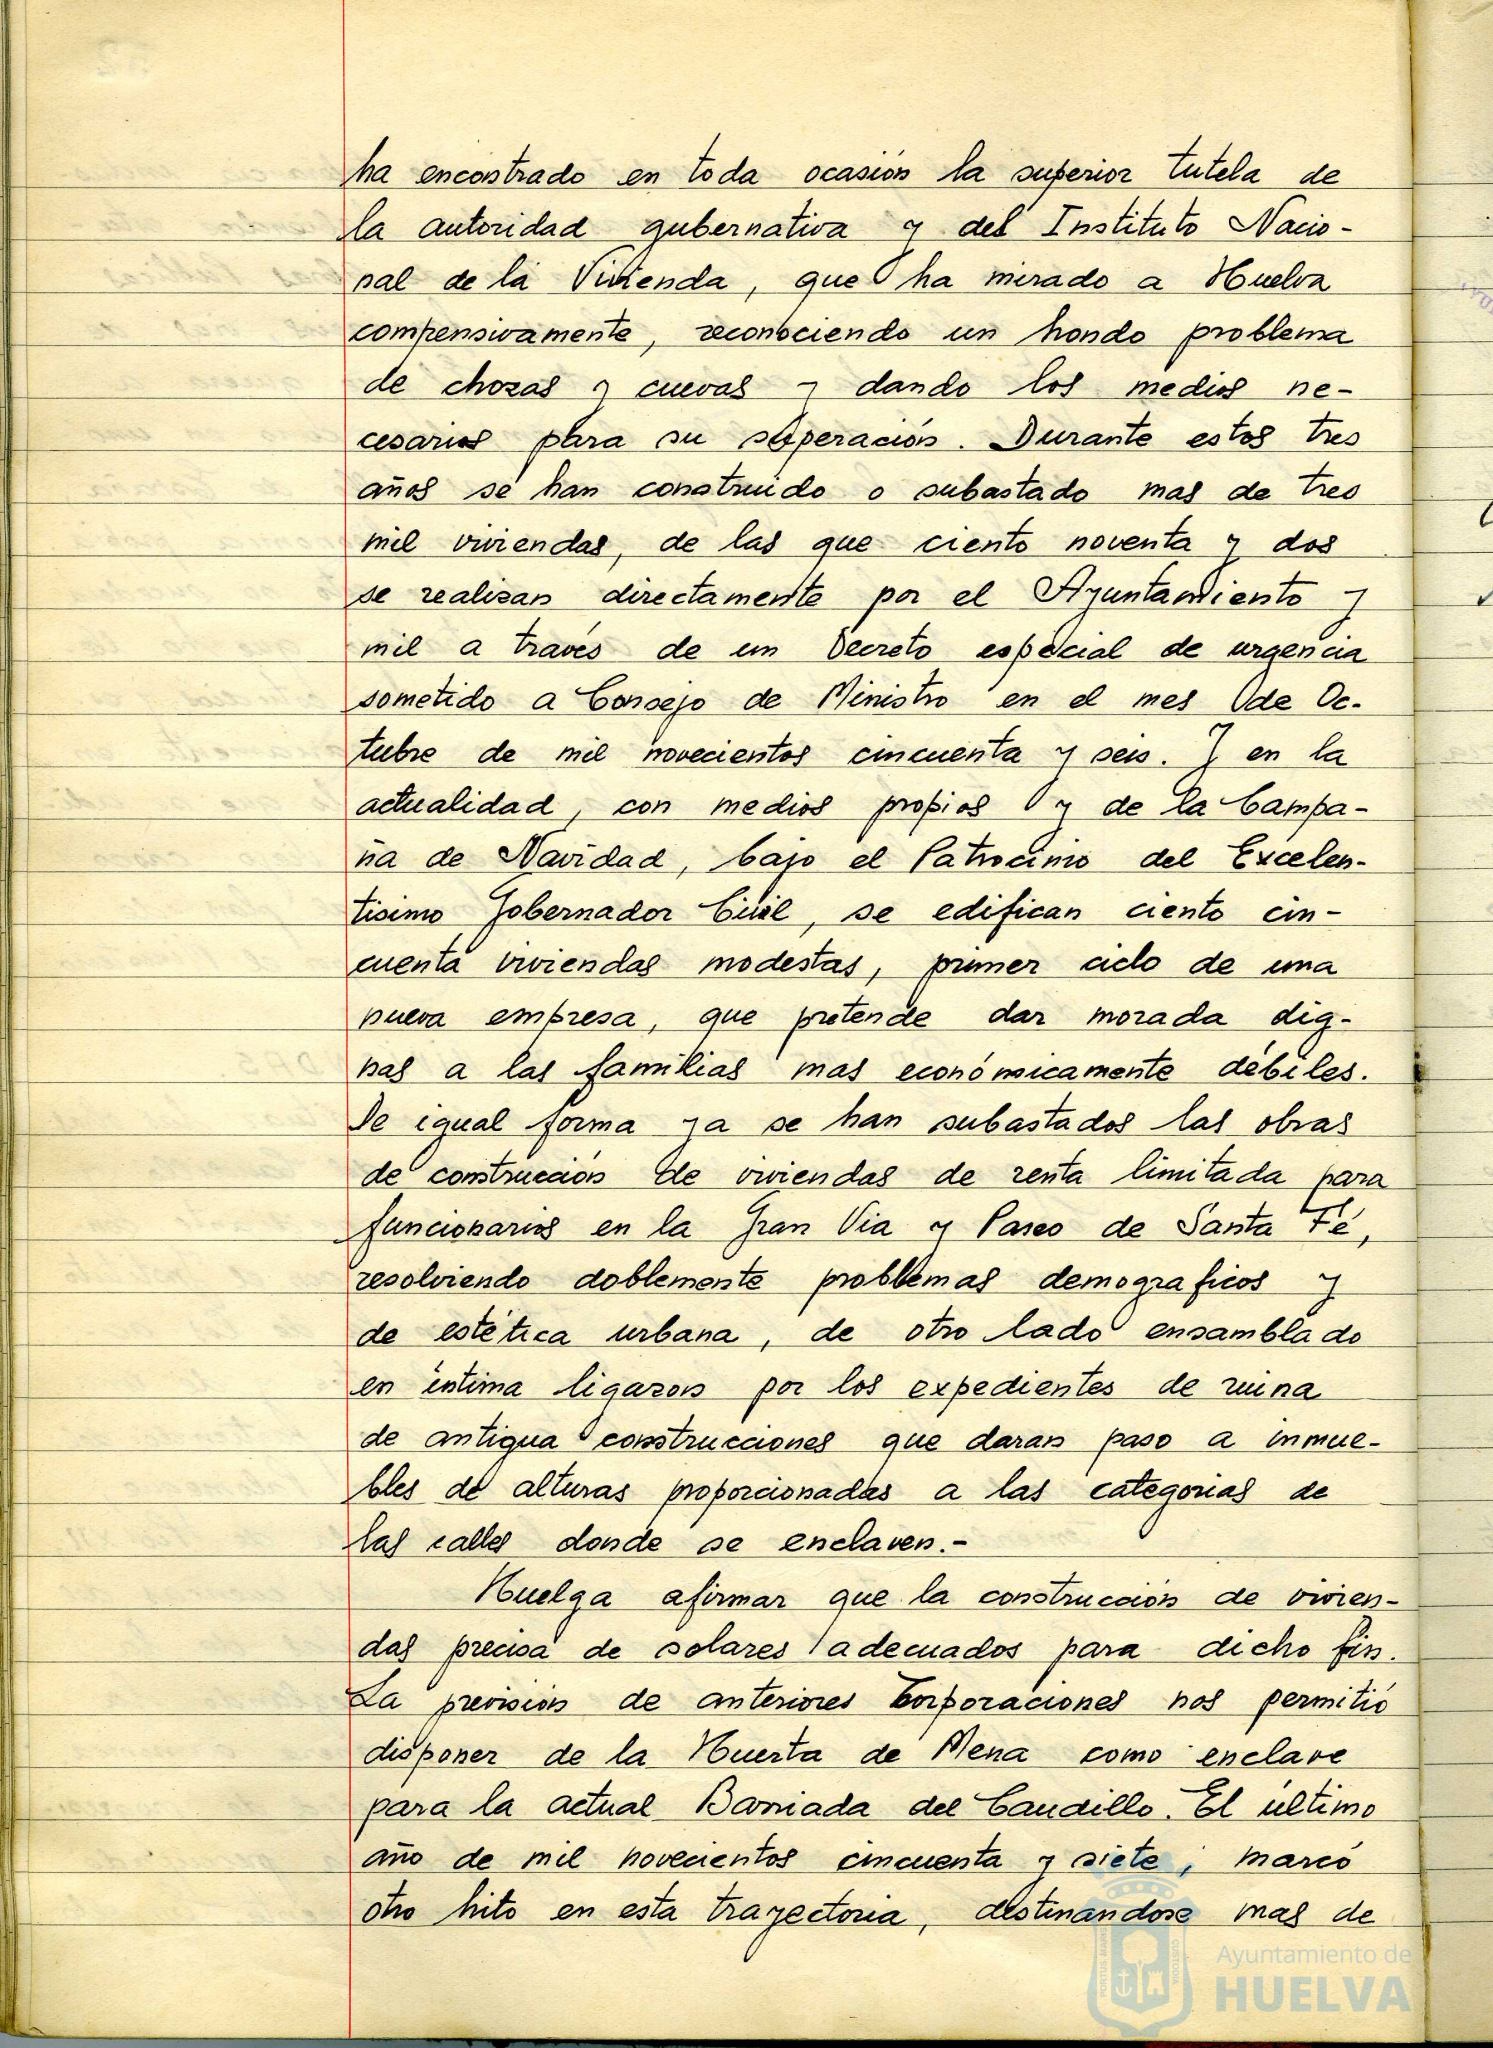 ha encontrado en toda ocasión la superior tutela de
la autoridad gubernativa y del Instituto Nacio-
nal de la Vivienda, que ha mirado a Huelva
compensivamente, reconociendo un hondo problema
de chozas y cuevas y dando los medios ne-
cesarios para su superación. Durante estos tres
años se han construido o subastado mas de tres
mil viviendas, de las que ciento noventa y dos
se realizan directamente por el Ayuntamiento y
mil a través de un Decreto especial de urgencia
sometido a Consejo de Ministro en el mes de Oc-
tubre de mil novecientos cincuenta y seis. Y en la
actualidad, con medios propios y de la Campa-
ña de Navidad, bajo el Patrocinio del Excelen-
tisimo Gobernador Civil, se edifican ciento cin-
cuenta viviendas modestas, primer ciclo de una
nueva empresa, que pretende dar morada dig-
nas a las familias mas económicamente débiles.
De igual forma ya se han subastados las obras
de construcción de viviendas de renta limitada para
funcionarios en la Gran Via y Paseo de Santa Fé,
resolviendo doblemente problemas demograficos y
de estética urbana, de otro lado ensamblado
en íntima ligazon por los expedientes de ruina
de antigua construcciones que daran paso a inmue-
bles de alturas proporcionadas a las categorias de
las calles donde se enclaven.-
Huelga afirmar que la construcción de vivien-
das precisa de solares adecuados para dicho fin.
La previsión de anteriores Corporaciones nos permitió
disponer de la Huerta de Mena como enclave
para la actual Barriada del Caudillo. El último
año de mil novecientos cincuenta y siete, marcó
otro hito en esta trayectoria, destinandose mas de
Ayuntamiento de
HUELVA